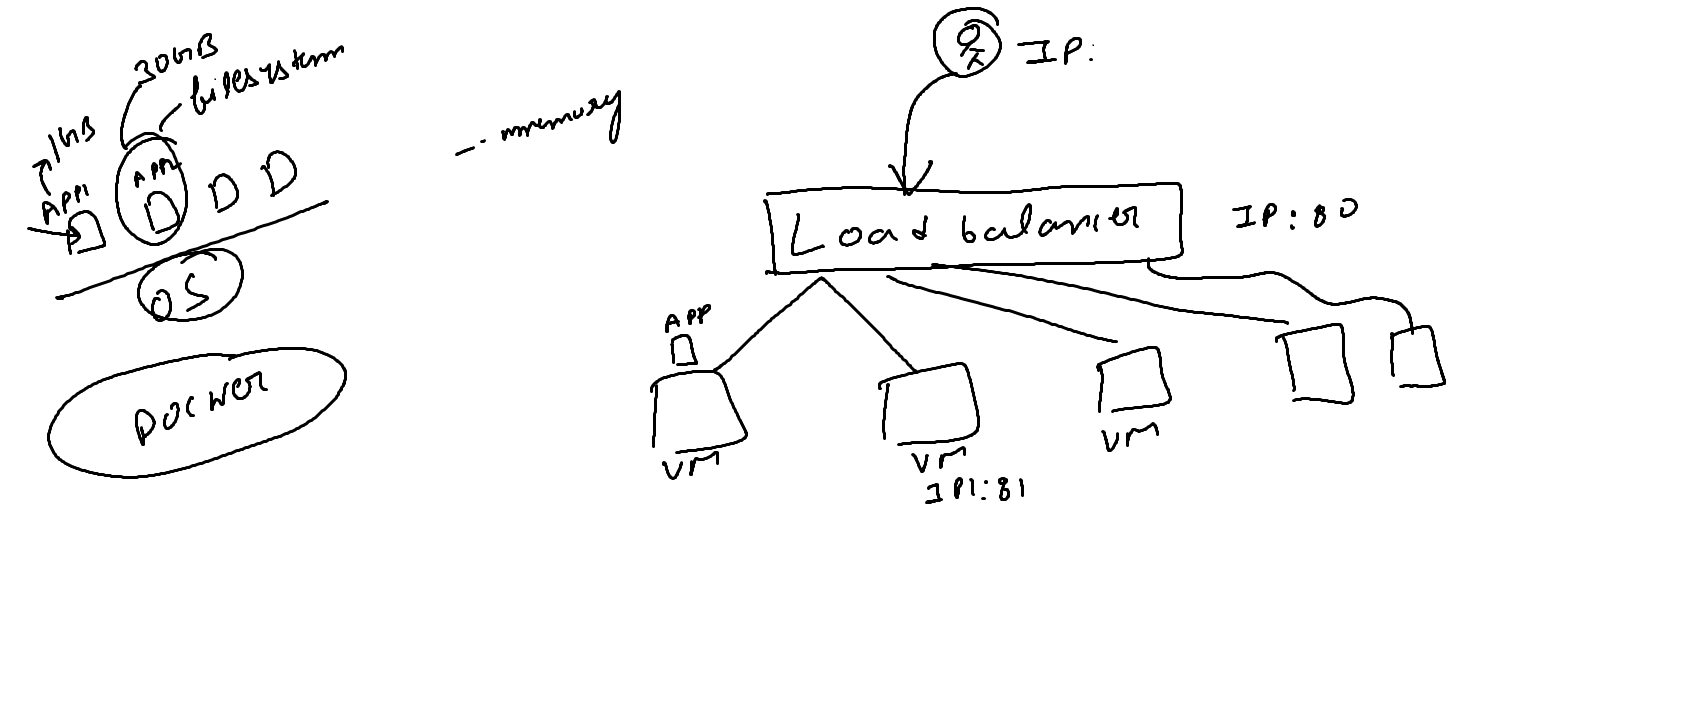 30GB
filesystem
1GB
APP1
APP2
OS
DOCKER
- memory
IP:
Load balancer
IP:80
APP
VM
VM
IP1:81
VM